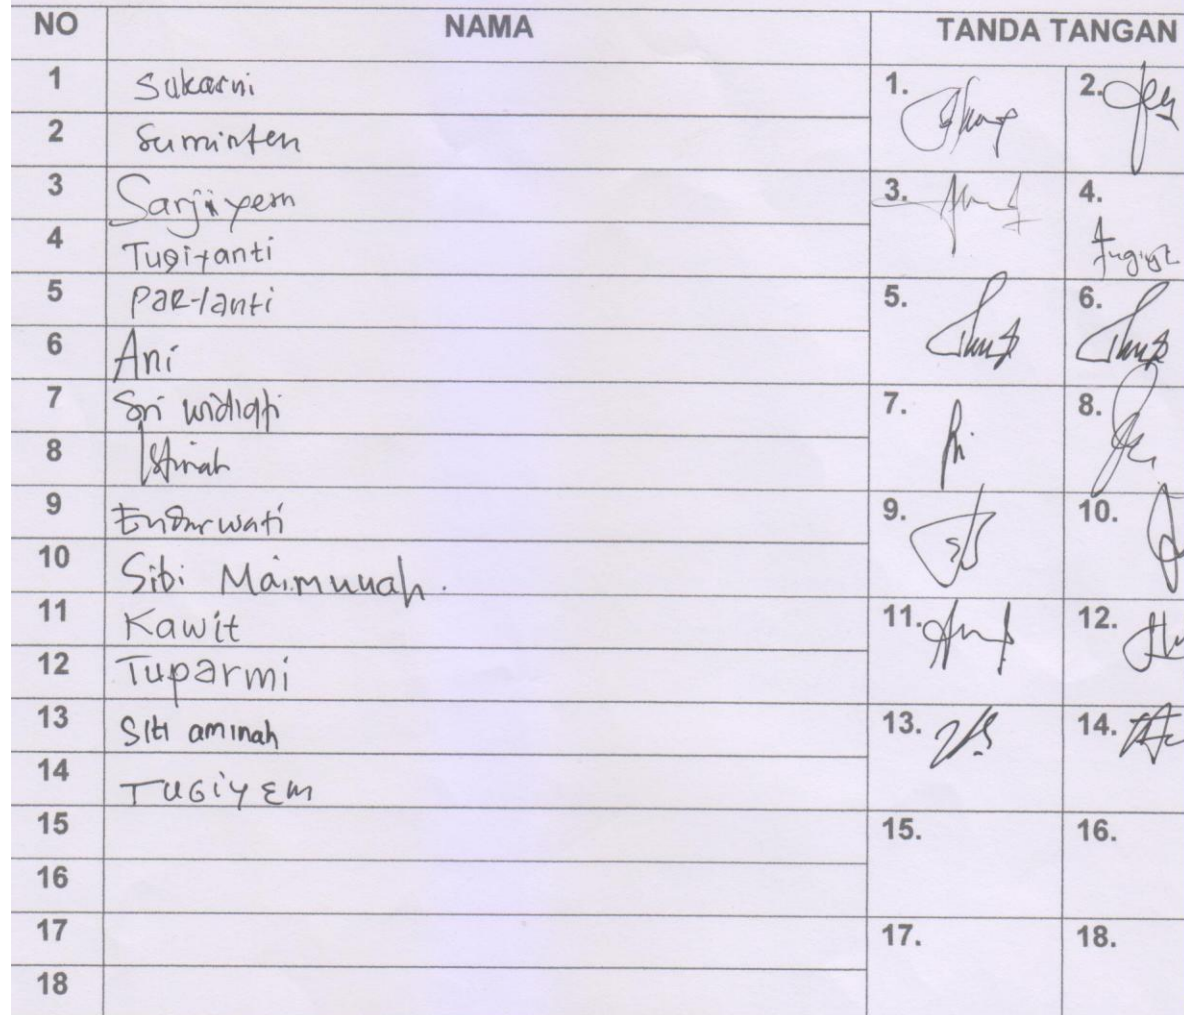 NO NAMA TANDA TANGAN
1 Sukarni 1. 2.
2 Suminten
3 Sarjiyem 3. 4.
4 Tugiyanti
5 Paryanti 5. 6.
6 Ani
7 Sri widiati 7. 8.
8 Istinah
9 Endarwati 9. 10.
10 Siti Maimunah.
11 Kawit 11. 12.
12 Tuparmi
13 Siti aminah 13. 14.
14 TUGiYEM
15 15. 16.
16
17 17. 18.
18